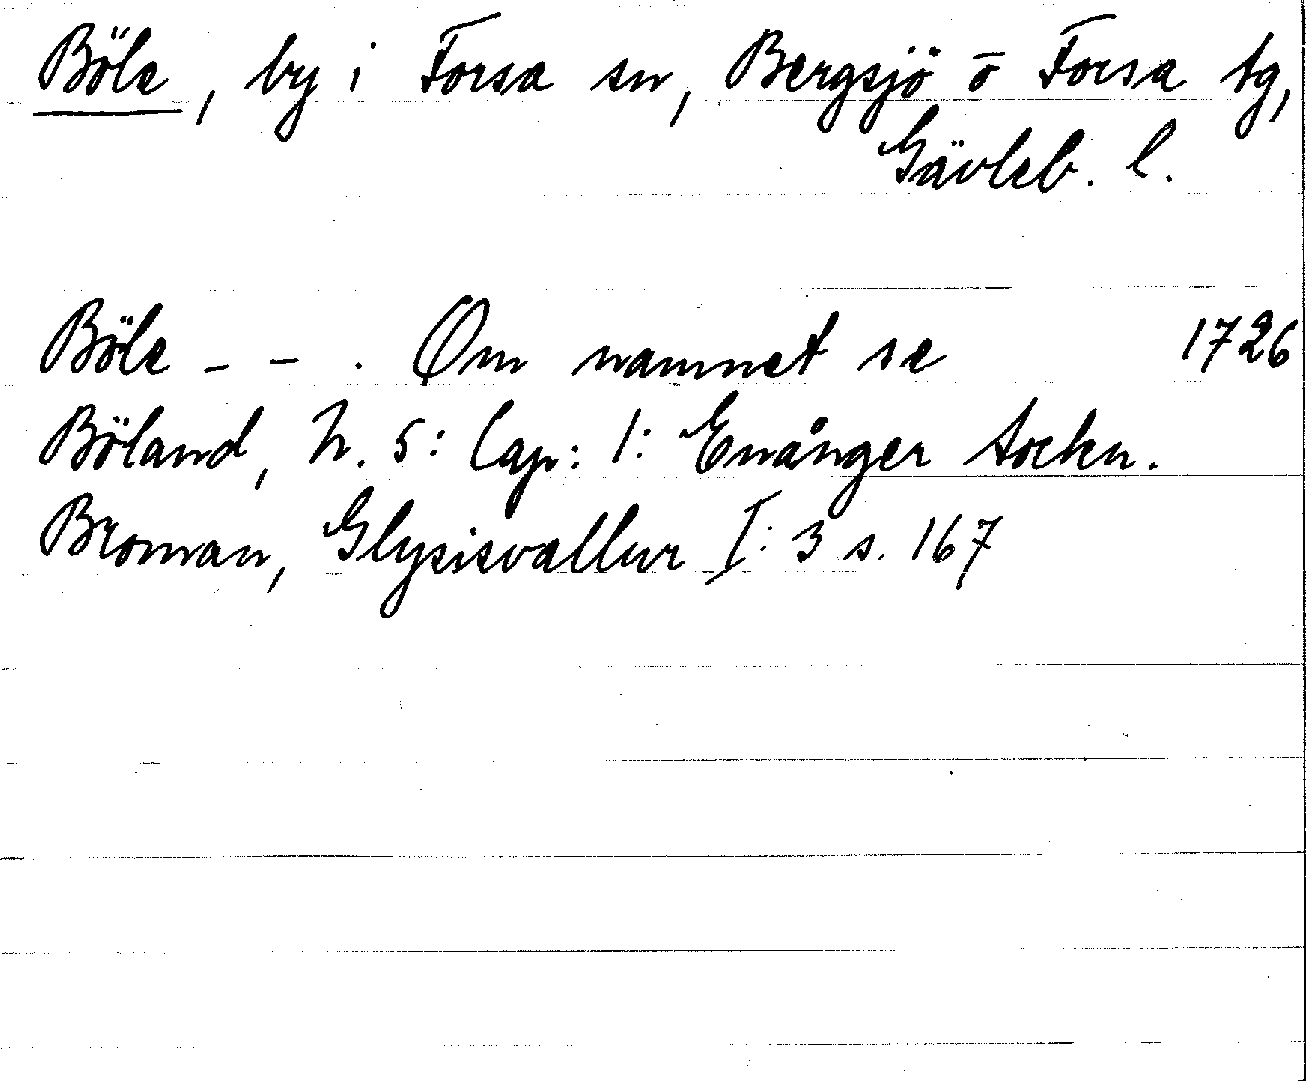 Böle, by i Forsa sn, Bergsjö o Forsa tg,
Gävleb. l.
Böle – – . Om namnet se 1726
Böland, N. 5: Cap: 1: Enånger Sockn.
Broman, Glysisvallur I: 3 s. 167